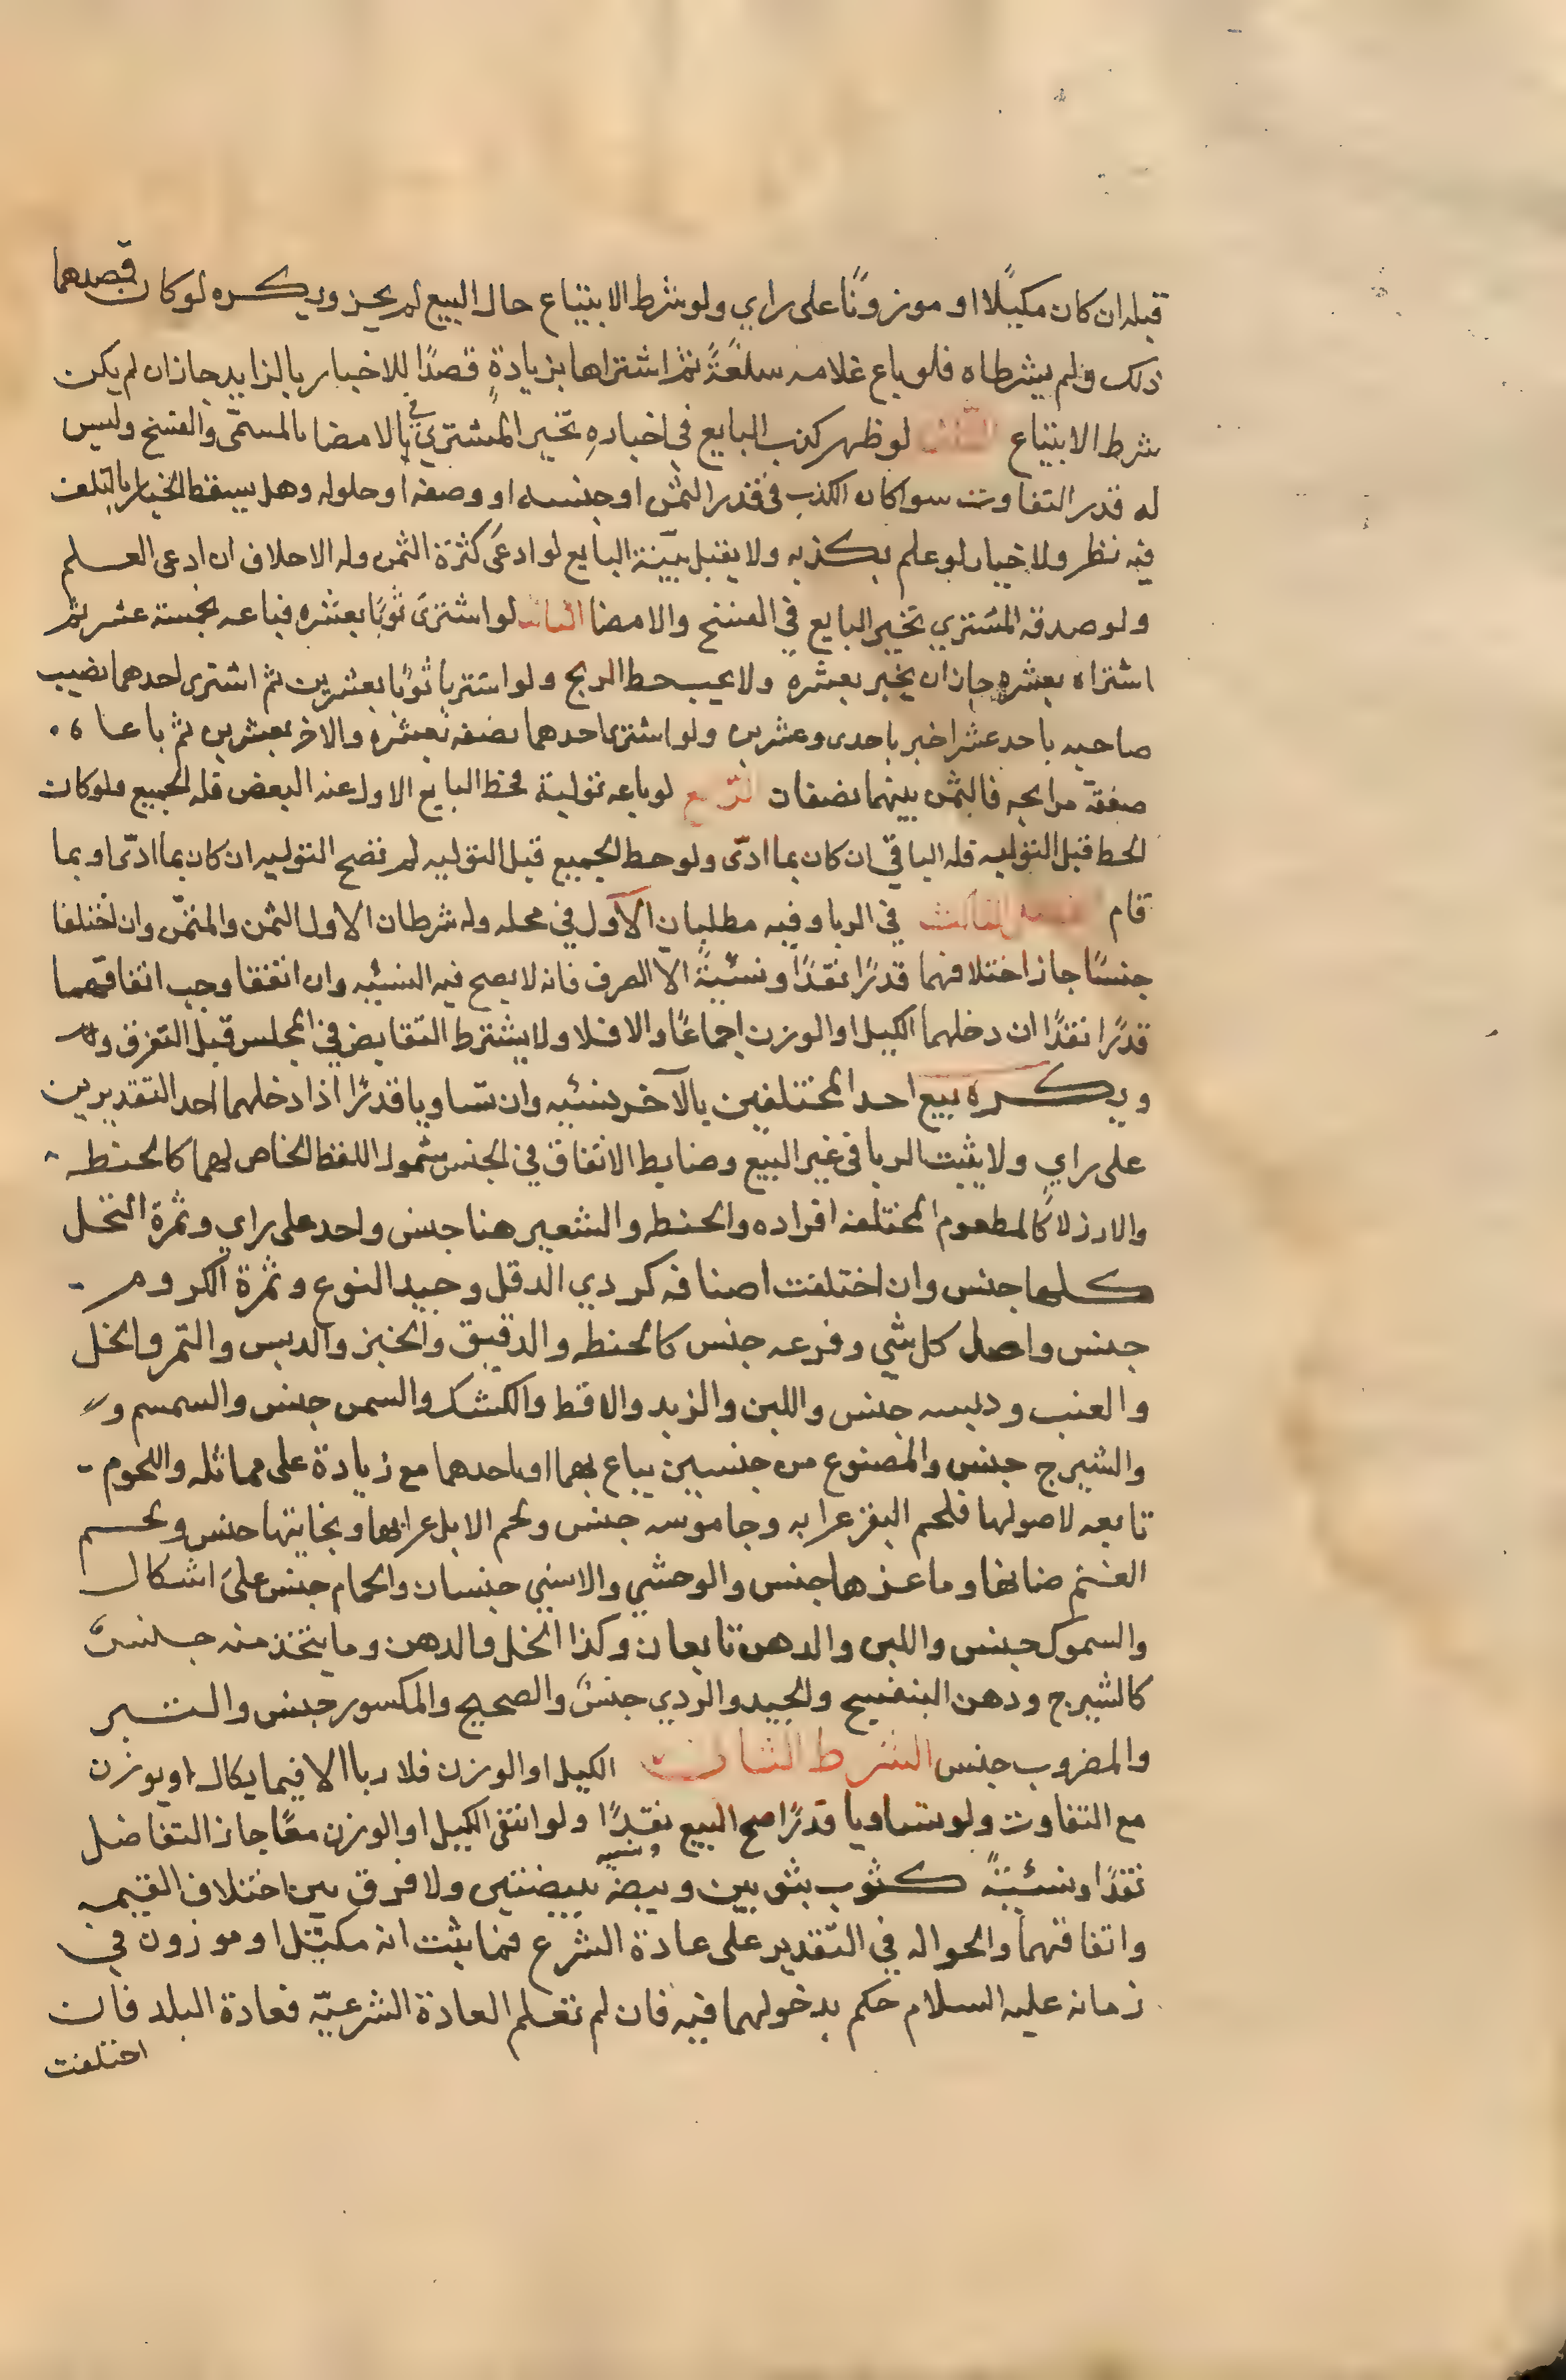 قبله ان كان مكيلًا او موزونًا على راي ولو شرط الابتياع حال البيع لم يجز ويكره لو كان قصدهما
ذلك ولم يشرطاه فلو باع غلامه سلعةً ثم اشتراها بزيادةٍ قصدًا للاخبار بالزايد جاز ان لم يكن
شرط الابتياع لو ظهر كذب البايع في اخباره تخير المشتري في الامضا بالمسمّى والفسخ وليس
له قدر التفاوت سوا كان الكذب في قدر الثمن او جنسه او وصفه او حلوله وهل يسقط الخيار بالتلف
فيه نظر ولا خيار لو علم بكذبه ولا يقبل بيّنة البايع لو ادعى كثرة الثمن وله الاحلاف ان ادعى العلم
ولو صدقه المشتري تخير البايع في الفسخ والامضا الثالث لو اشترى ثوبًا بعشره فباعه بخمسة عشر ثم
اشتراه بعشره جاز ان يخبر بعشره ولا يجب حط الربح ولو اشتريا ثوبًا بعشرين ثم اشترى احدهما نصيب
صاحبه باحد عشر اخبر باحدى وعشرين ولو اشترى احدهما نصفه بعشره والاخر بعشرين ثم باعاه
صفقة مرابحه فالثمن بينهما نصفان الرّابع لو باعه تولية فحط البايع الاول عنه البعض فله الجميع ولو كان
الحط قبل التوليه فله الباقي ان كان بما ادّى ولو حط الجميع قبل التوليه لم تصح التوليه ان كان بما ادّى او بما
قام الفصل الثالث في الربا وفيه مطلبان الآول في محله وله شرطان الاول الثمن والمثمّن وان اختلفا
جنسًا جاز اختلافهما قدرًا نقدًا ونسئيةً الاّ الصرف فانه لا يصح فيه النسئيه وان اتفقا وجب اتفاقهما
قدرًا نقدًا ان دخلهما الكيل او الوزن اجماعًا والا فلا ولا يشترط التقابض في المجلس قبل التفرق و
ويكره بيع احد المختلفين بالآخر نسئيه وان تساويا قدرًا اذا دخلهما احد التقديرين
على راي ولا يثبت الربا في غير البيع وضابط الاتفاق في الجنس شمول اللفظ الخاص لهما كالحنطه
والارز لا كالمطعوم المختلفه افراده والحنطه والشعير هنا جنس واحد على راي وثمرة النخل
كلها جنس وان اختلفت اصنافه كردي الدقل وجيد النوع وثمرة الكروم
جنس واصل كل شي وفرعه جنس كالحنطه والدقيق والخبز والدبس والتمر والخل
والعنب ودبسه جنس واللبن والزبد والاقط والكشك والسمن جنس والسمسم و
والشيرج جنس والمصنوع من جنسين يباع بهما او باحدهما مع زيادة على مماثله واللحوم
تابعه لاصولها فلحم البقر عرابه وجاموسه جنس ولحم الابل عرابها وبخاتيها جنس ولحم
الغنم ضانها وماعزها جنس والوحشي والانسي جنسان والحمام جنس على اشكال
والسموك جنس واللبن والدهن تابعان وكذا الخل فالدهن وما يتخذ منه جنس
كالشيرج ودهن البنفسج والجيد والردي جنسٌ والصحيح والمكسور جنس والتبر
والمضروب جنس الشرط الثاني الكيل او الوزن فلا ربا الا فيما يكال او يوزن
مع التفاوت ولو تساويا قدرًا صح البيع نقدًا ولو انتفى الكيل او الوزن معًا جاز التفاضل
نقدًا ونسئيةً كثوب بثوبين وبيضه ببيضتين ولا فرق بين اختلاف القيمه
واتفاقهما والحواله في التقدير على عادة الشرع فما يثبت انه مكيل او موزون في
زمانه عليه السلام حكم بدخولهما فيه فان لم تعلم العادة الشرعيّه فعادة البلد فان
اختلفت